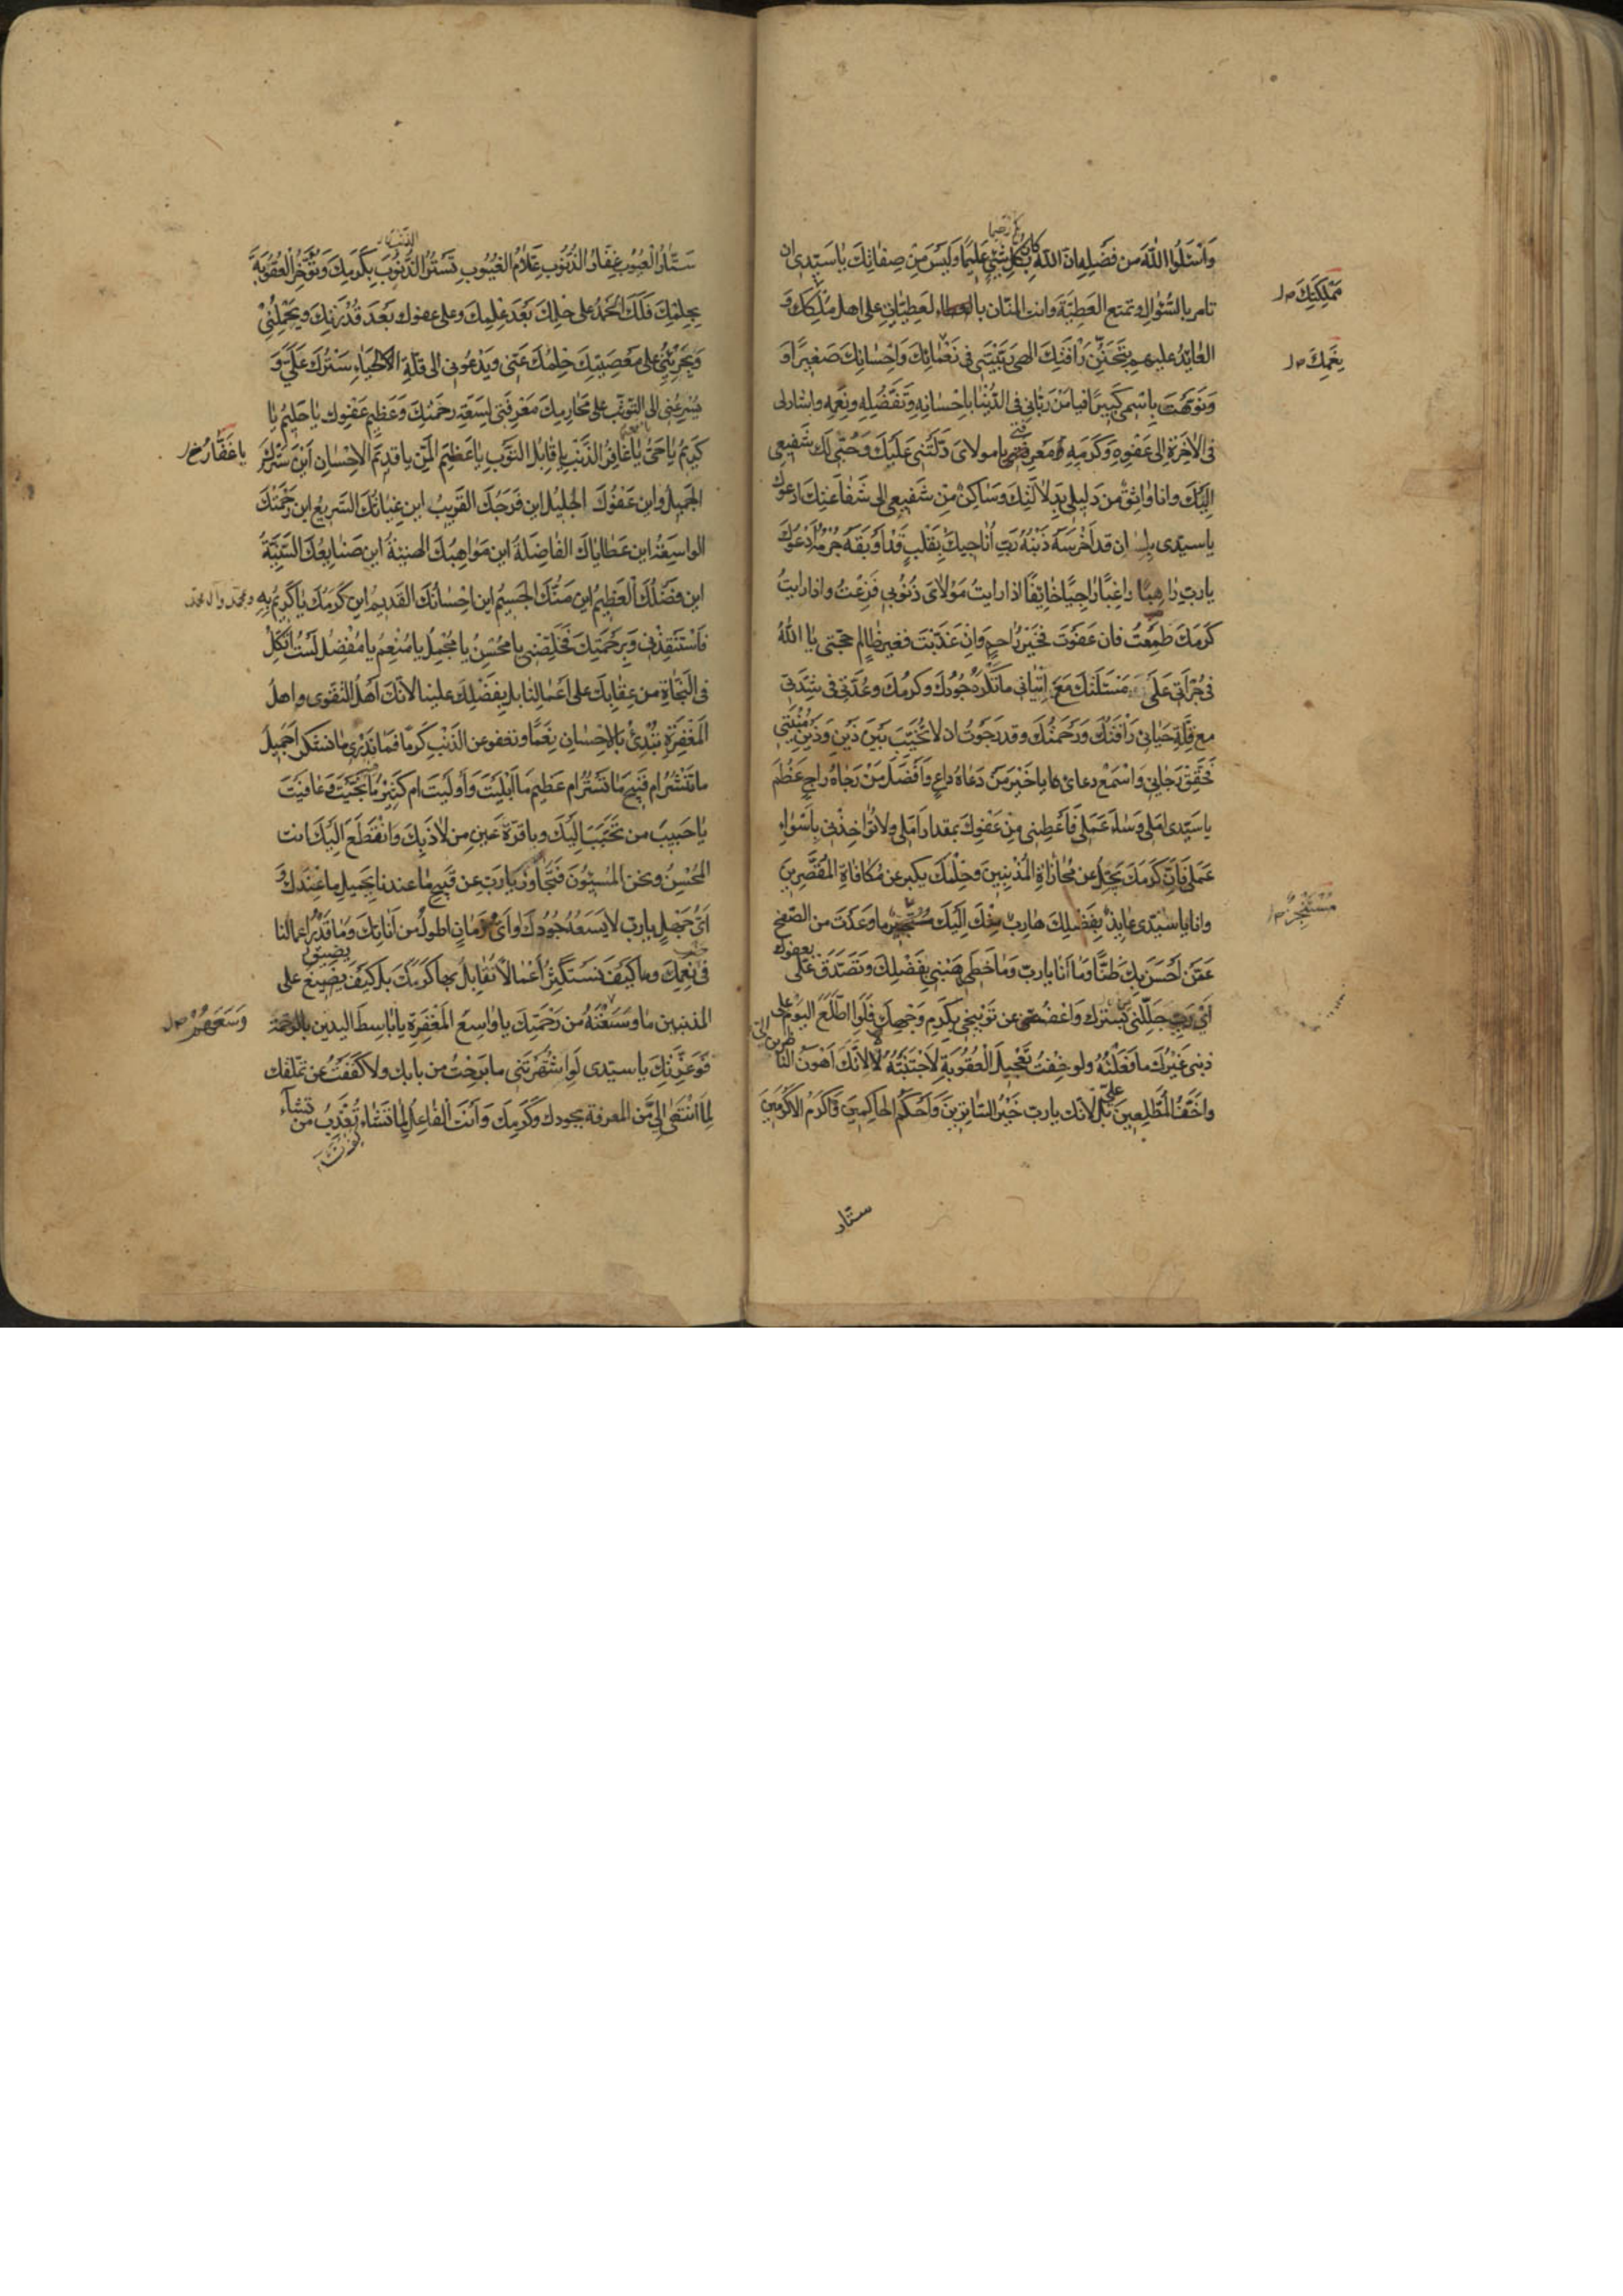 وَاسْئَلُوا اللّٰهَ مِن فَضْلِهِ اِنَّ اللّٰهَ كانَ بِكُلِّ شَيْءٍ عَلِيمًا وَلَيْسَ مِنْ صِفاتِكَ يا سَيِّدى ان
تامر بالسُّؤالِ وتمنع العَطِيَّةَ وانت المنّان بالعطاء لعطِيّاتِ على اهل مُلْكِكَ وَ
مَمْلَكَتِكَ
العائِدُ عليهم بِتَحَنُّنِ رَأْفَتِكَ الهى رَبَّيْتَنِى فى نَعْمائِكَ وَاِحْسانِكَ صَغِيرًا وَ
نِعَمِكَ
وَنَوَّهْتَ بِاسْمى كَبِيرًا فيا مَنْ رَبّانى فى الدُّنْيا بِاِحْسانِهِ وَتَفَضُّلِهِ ونِعَمِهِ واشار لى
فى الآخِرَةِ الى عَفْوِهِ وَكَرَمِهِ مَعْرِفَتى يا مولاىَ دَلَّتْنى عَلَيْكَ وَحُبّى لَكَ شَفيعى
اِلَيْكَ وانا واثِقٌ مِنْ دَلِيلى بِدِلالَتِكَ وَساكِنٌ مِنْ شَفيعى الى شَفاعَتِكَ ادعوك
يا سيّدى بِلِسان قد اَخْرَسَهُ ذَنْبُهُ رَبِّ اُناجِيكَ بِقَلْبٍ قَدْ اَوْبَقَهُ جُرْمُهُ اَدْعُوكَ
يا ربِّ راهِبًا راغِبًا راجِيًا خائِفًا اذا رايتُ مَوْلاىَ ذُنُوبى فَزِعْتُ واذا رايتُ
كَرَمَكَ طَمِعْتُ فان عَفَوْتَ فَخَيْرُ راحِمٍ وَاِنْ عَذَّبْتَ فغير ظالِمٍ حجّتى يا اللّٰهُ
فى جُرْأَتى عَلى مَسْئَلَتِكَ مَعَ اِتْيانى ما تَكْرَهُ جُودُكَ وكرمُكَ وعُدَّتى فى شِدَّتى
مع قِلَّةِ حَيائى رَأْفَتُكَ وَرَحْمَتُكَ وقد رَجَوْتُ ان لا تُخَيِّبَ بَيْنَ ذَيْنِ وَذَيْنِ مُنْيَتى
فَحَقِّقْ رَجائى وَاسْمَعْ دعائى يا خَيْرَ مَنْ دَعاهُ داعٍ وَاَفْضَلَ مَنْ رَجاهُ راجٍ عَظُمَ
يا سَيِّدى امَلى وَساءَ عَمَلى فَاَعْطِنى مِنْ عَفْوِكَ بمقدار اَمَلى ولا تُؤاخِذْنى بِاَسْوَاءِ
عَمَلى فَاِنَّ كَرَمَكَ يَجِلُّ عن مُجازاةِ المُذْنِبِينَ وَحِلْمَكَ يكبر عن مُكافاةِ المُقَصِّرِينَ
وانا يا سَيِّدى عائِذٌ بِفَضْلِكَ هارِبٌ مِنْكَ اِلَيْكَ ما وَعَدْتَ من الصّفح
مُسْتَنْجِزٌ
عَمَّنْ اَحْسَنَ بِكَ ظَنًّا وَما اَنَا يا ربّ وَما خَطَرى هَبْنى بِفَضْلِكَ وَتَصَدَّقْ عَلَى
بعفوك
اَىْ رَبِّ جَلِّلْنى بِسِتْرِكَ وَاعْفُ عن تَوْبِيخى بِكَرَمِ وَجْهِكَ فَلَوِ اطَّلَعَ اليَوْمَ على
ذنبى غَيْرُكَ ما فَعَلْتُهُ ولو خِفْتُ تَعْجِيلَ العُقُوبَةِ لَاجْتَنَبْتُهُ لا لِاَنَّكَ اَهْوَنُ النا
ظرين الىّ
واَخَفُّ المُطَّلِعِينَ علىّ بَلْ لانّك يا ربّ خَيْرُ السّاتِرِينَ وَاَحْكَمُ الحاكِمِينَ وَاَكْرَمُ الاَكْرَمِينَ
ستّار
سَتّارُ العُيُوبِ غَفّارُ الذُّنُوبِ عَلّامُ الغُيُوبِ تَسْتُرُ الذُّنُوبَ بِكَرَمِكَ وَتُؤَخِّرُ العُقُوبَةَ
الذّنب
بِحِلْمِكَ فَلَكَ الحَمْدُ على حِلْمِكَ بَعْدَ عِلْمِكَ وعلى عفوك بَعْدَ قُدْرَتِكَ ويَحْمِلُنى
وَيُجَرِّئُنى على مَعْصِيَتِكَ حِلْمُكَ عَنّى ويَدْعُونى الى قِلَّةِ الحَياءِ سَتْرُكَ عَلَىَّ وَ
يُسْرِعُنى الى التوثّب على مَحارِمِكَ مَعْرِفَتى بِسَعَةِ رَحْمَتِكَ وَعَظِيمِ عَفْوِكَ يا حَلِيمُ يا
كَرِيمُ يا حَىُّ يا غافِرَ الذَّنْبِ يا قابِلَ التَّوْبِ يا عَظِيمَ المَنِّ يا قدِيمَ الاِحْسانِ اَيْنَ سَتْرُكَ
يا غَفّارُ خ ل
الجَمِيلُ واين عَفْوُكَ الجَلِيلُ اين فَرَجُكَ القَرِيبُ اين غِياثُكَ السَّرِيعُ اين رَحْمَتُكَ
الواسِعَةُ اين عَطاياكَ الفاضِلَةُ اين مَواهِبُكَ الهنيئةُ اين صَنايِعُكَ السَّنِيَّةُ
اين فَضْلُكَ العَظِيمُ اين مَنُّكَ الجَسِيمُ اين اِحْسانُكَ القَدِيمُ اين كَرَمُكَ يا كَرِيمُ بِهِ
وبمحمّد وآل محمّد
فَاسْتَنْقِذْنى وَبِرَحْمَتِكَ فَخَلِّصْنى يا مُحْسِنُ يا مُجْمِلُ يا مُنْعِمُ يا مُفْضِلُ لَسْتُ اَتَّكِلُ
فى النَّجاةِ من عِقابِكَ على اَعْمالِنا بل بِفَضْلِكَ علينا لانّكَ اَهْلُ التَّقْوى واهلُ
المَغْفِرَةِ تُبْدِئُ بالاِحْسانِ نِعَمًا وتعفو عن الذَّنْبِ كَرَمًا فَما نَدْرِى ما نشكر اَجَمِيلَ
ما تَنْشُرُ ام قَبِيحَ ما تَسْتُرُ ام عَظِيمَ ما اَبْلَيْتَ وَاَوْلَيْتَ ام كَثِيرَ ما نَجَّيْتَ وَعافَيْتَ
يا حَبِيبَ من تَحَبَّبَ اِلَيْكَ ويا قرّةَ عَيْنِ مَن لاذَ بِكَ وَانْقَطَعَ اِلَيْكَ انت
المُحْسِنُ ونحن المُسِيئُونَ فَتَجاوَزْ يا رَبِّ عن قَبِيحِ ما عندنا بِجَمِيلِ ما عِنْدَكَ وَ
اَىُّ جَهْلٍ يا ربّ لا يَسَعُهُ جُودُكَ وَاَىُّ زَمانٍ اطولُ من اَناتِكَ وَما قَدْرُ اعمالنا
فى نِعَمِكَ وكَيْفَ نَسْتَكْثِرُ اَعْمالًا نُقابِلُ بها كَرَمَكَ بل كَيْفَ يَضِيقُ على
يضيق
المذنبين ما وَسِعَتْهُ من رَحْمَتِكَ يا واسِعَ المَغْفِرَةِ يا باسِطَ اليدين بالرّحمة
وَسِعَهُمْ
فَوَعِزَّتِكَ يا سيّدى لَوِ انْتَهَرْتَنى ما بَرِحْتُ من بابك ولا كَفَفْتُ عن تملّقك
لِمَا انْتَهى اِلَىَّ مِنَ المعرفة بجودك وَكَرَمِكَ وَاَنْتَ الفاعِلُ لِما تَشاءُ تُعَذِّبُ من تشاء